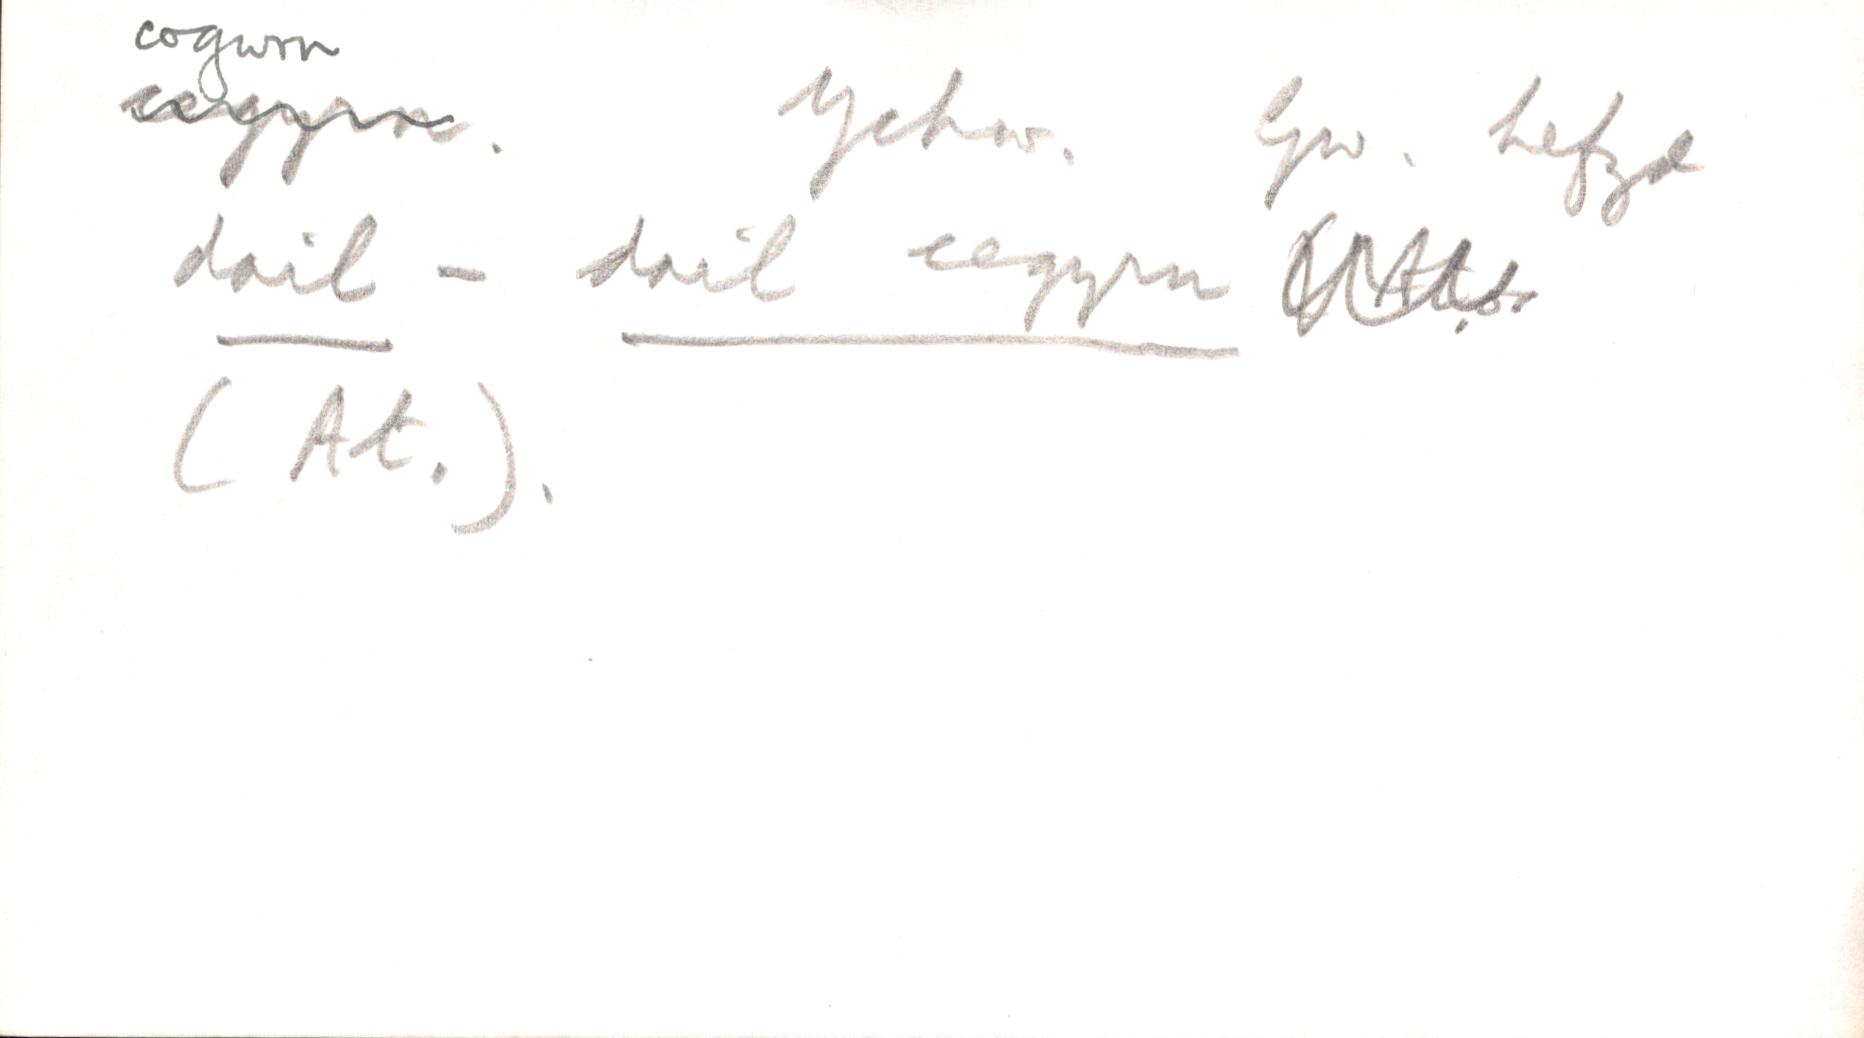 cogwrn
cegyrn. Ychw. Gw. hefyd
dail - dail cegyrn
(At.).